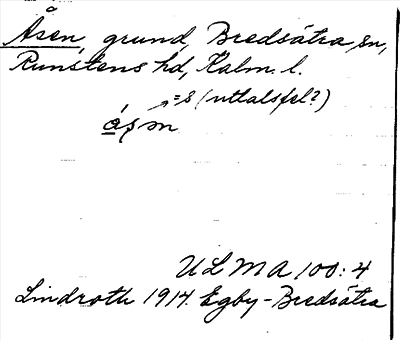 Åsen, grund, Bredsätra sn,
Runstens hd, Kalm. l.
=s (uttalsfel?)
åşn
ULMA 100:4
Lindroth 1914. Egby-Bredsätra